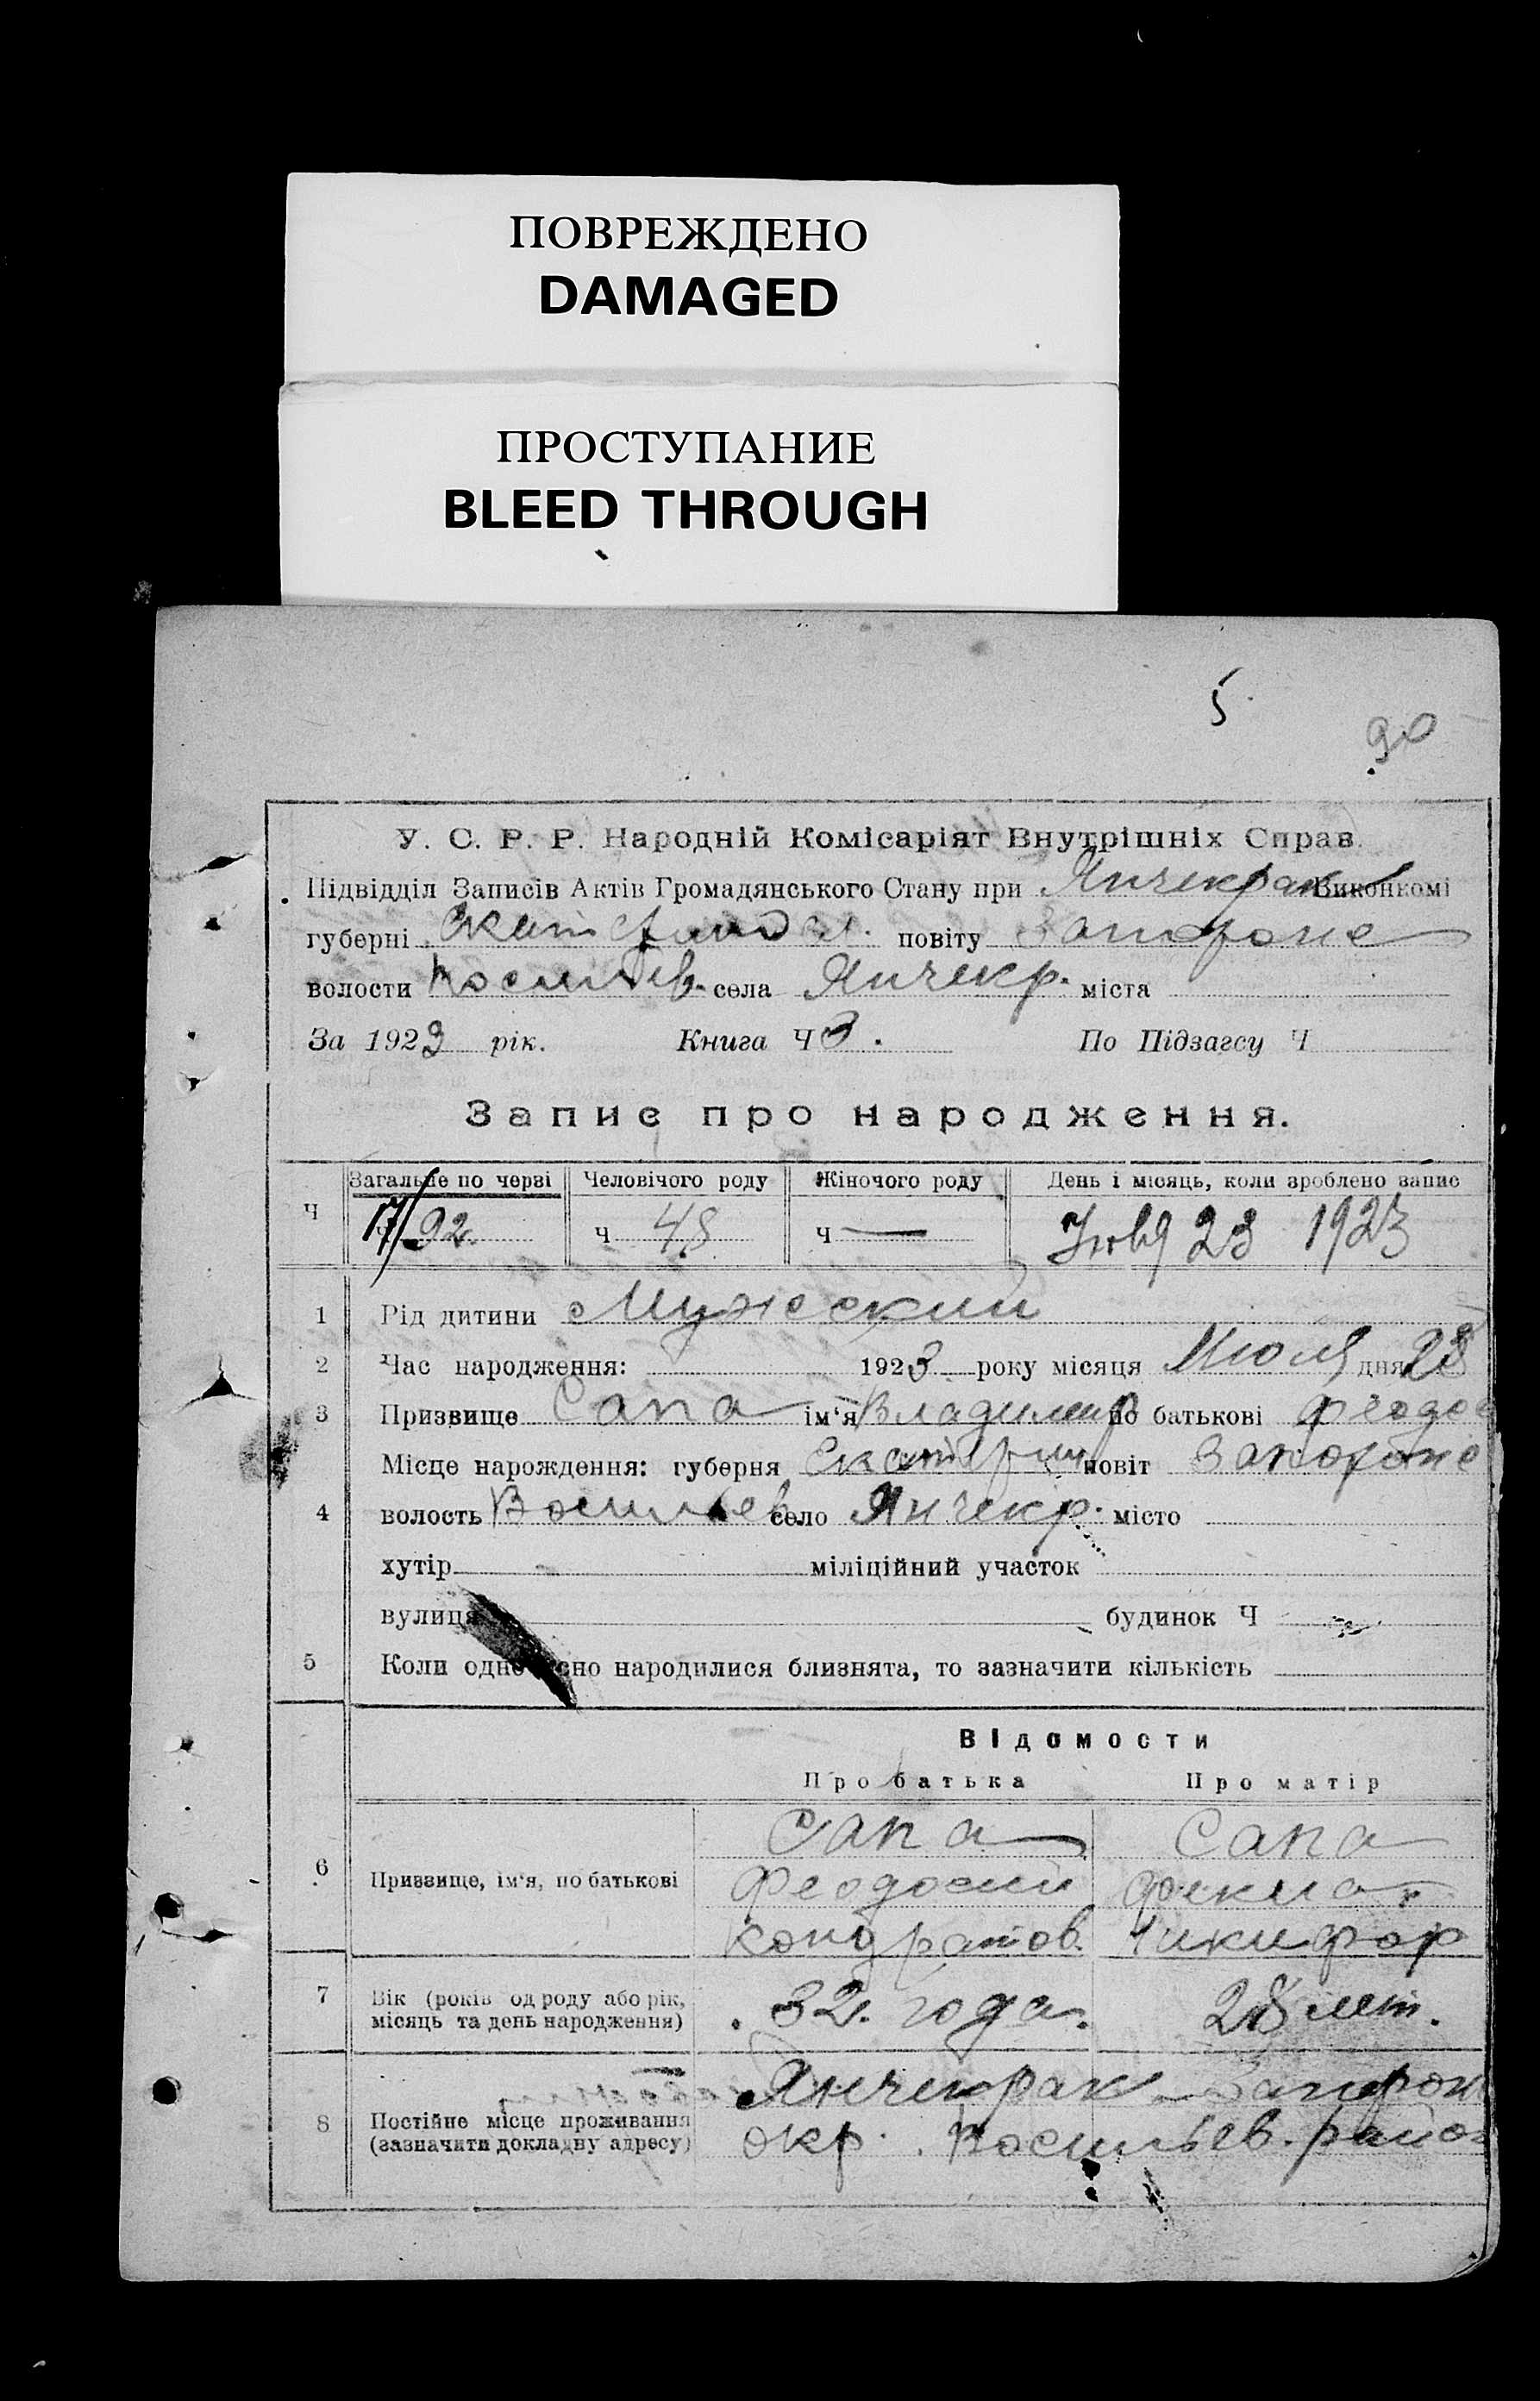 ПОВРЕЖДЕНО
DAMAGED
ПРОСТУПАНИЕ
BLEED THROUGH
5.
90
У. С. Р. Р. Народній Комісаріят Внутрішніх Справ.
Підвідділ Записів Актів Громадянського Стану при Янчекрак Виконкомі
губерні повіту Запорож
волости Васильев. села Янчекр. міста
За 1923 рік. Книга Ч 3. По Підзагсу Ч
Запис про народження.
Загальне по черзі Человічого роду Жіночого роду День і місяць, коли зроблено запис
Ч 17/92. ч 48 ч — 23 1923
1 Рід дитини Мужеский
2 Час народження: 1923 року місяця Июля дня 23
3 Призвище Сапа ім'я Владимир по батькові Феодос
Місце нарождення: губерня Екатерин повіт Запорож
4 волость Васильев село Янчекр. місто
хутір міліційний участок
вулиця будинок Ч
5 Коли одночасно народилися близнята, то зазначити кількість
Відомости
Про батька Про матір
Сапа Сапа
6 Призвище, ім'я, по батькові Феодосий Фекла
Кондратов. Никифор
7 Вік (років од роду або рік, місяць та день народження) 32. года. 28 лет.
Янчекрак Запорож
8 Постійне місце проживання (зазначити докладну адресу) окр. Васильев. район